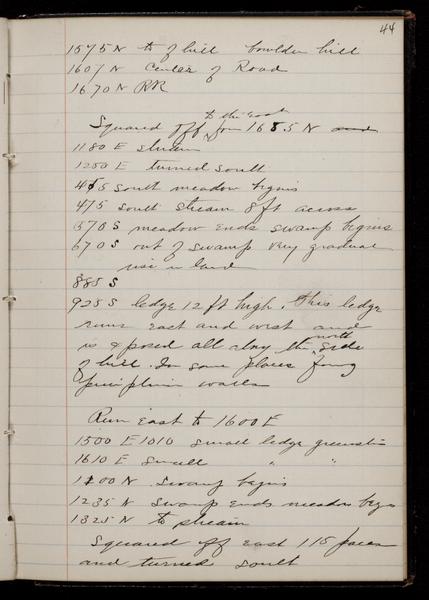 44
1575 N to of hill bowlder hill
1607 N Center of Road
1670 N RR
to the East
Squared off for 1685 N and
1180 E stream
1200 E turned South
455 South meadow begins
475 South Stream 8 ft across
570 S meadow ends swamp begins
670 S out of swamp very gradual
rise in land
885 S
925 S ledge 12 ft high. This ledge
runs east and west and
north
is exposed all along the side
of hill. In some places
walls
Run East to 1600 E
1500 E 1010 small ledge
1610 E Small " "
1100 N Swamp begins
1235 N Swamp ends meadow begs
1325 N to stream
Squared off east 115 paces
and turned South